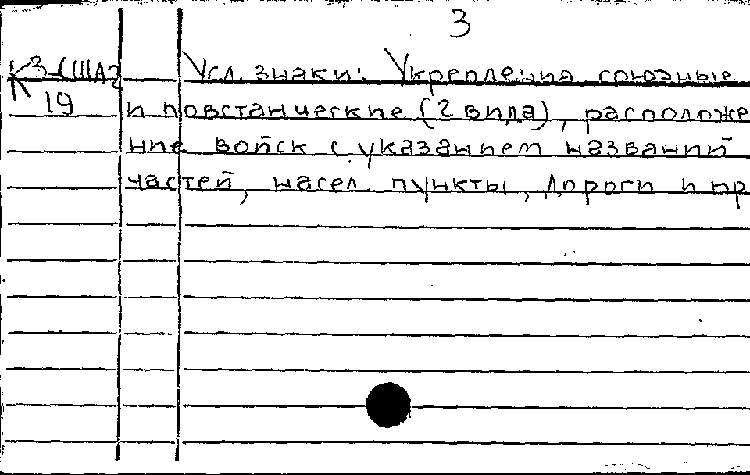 3
К3-США2 Усл. знаки: Укрепления союзные
19 и повстанческие (2 вида), расположе
ние войск с указанием названий
частей, насел. пункты, дороги и пр